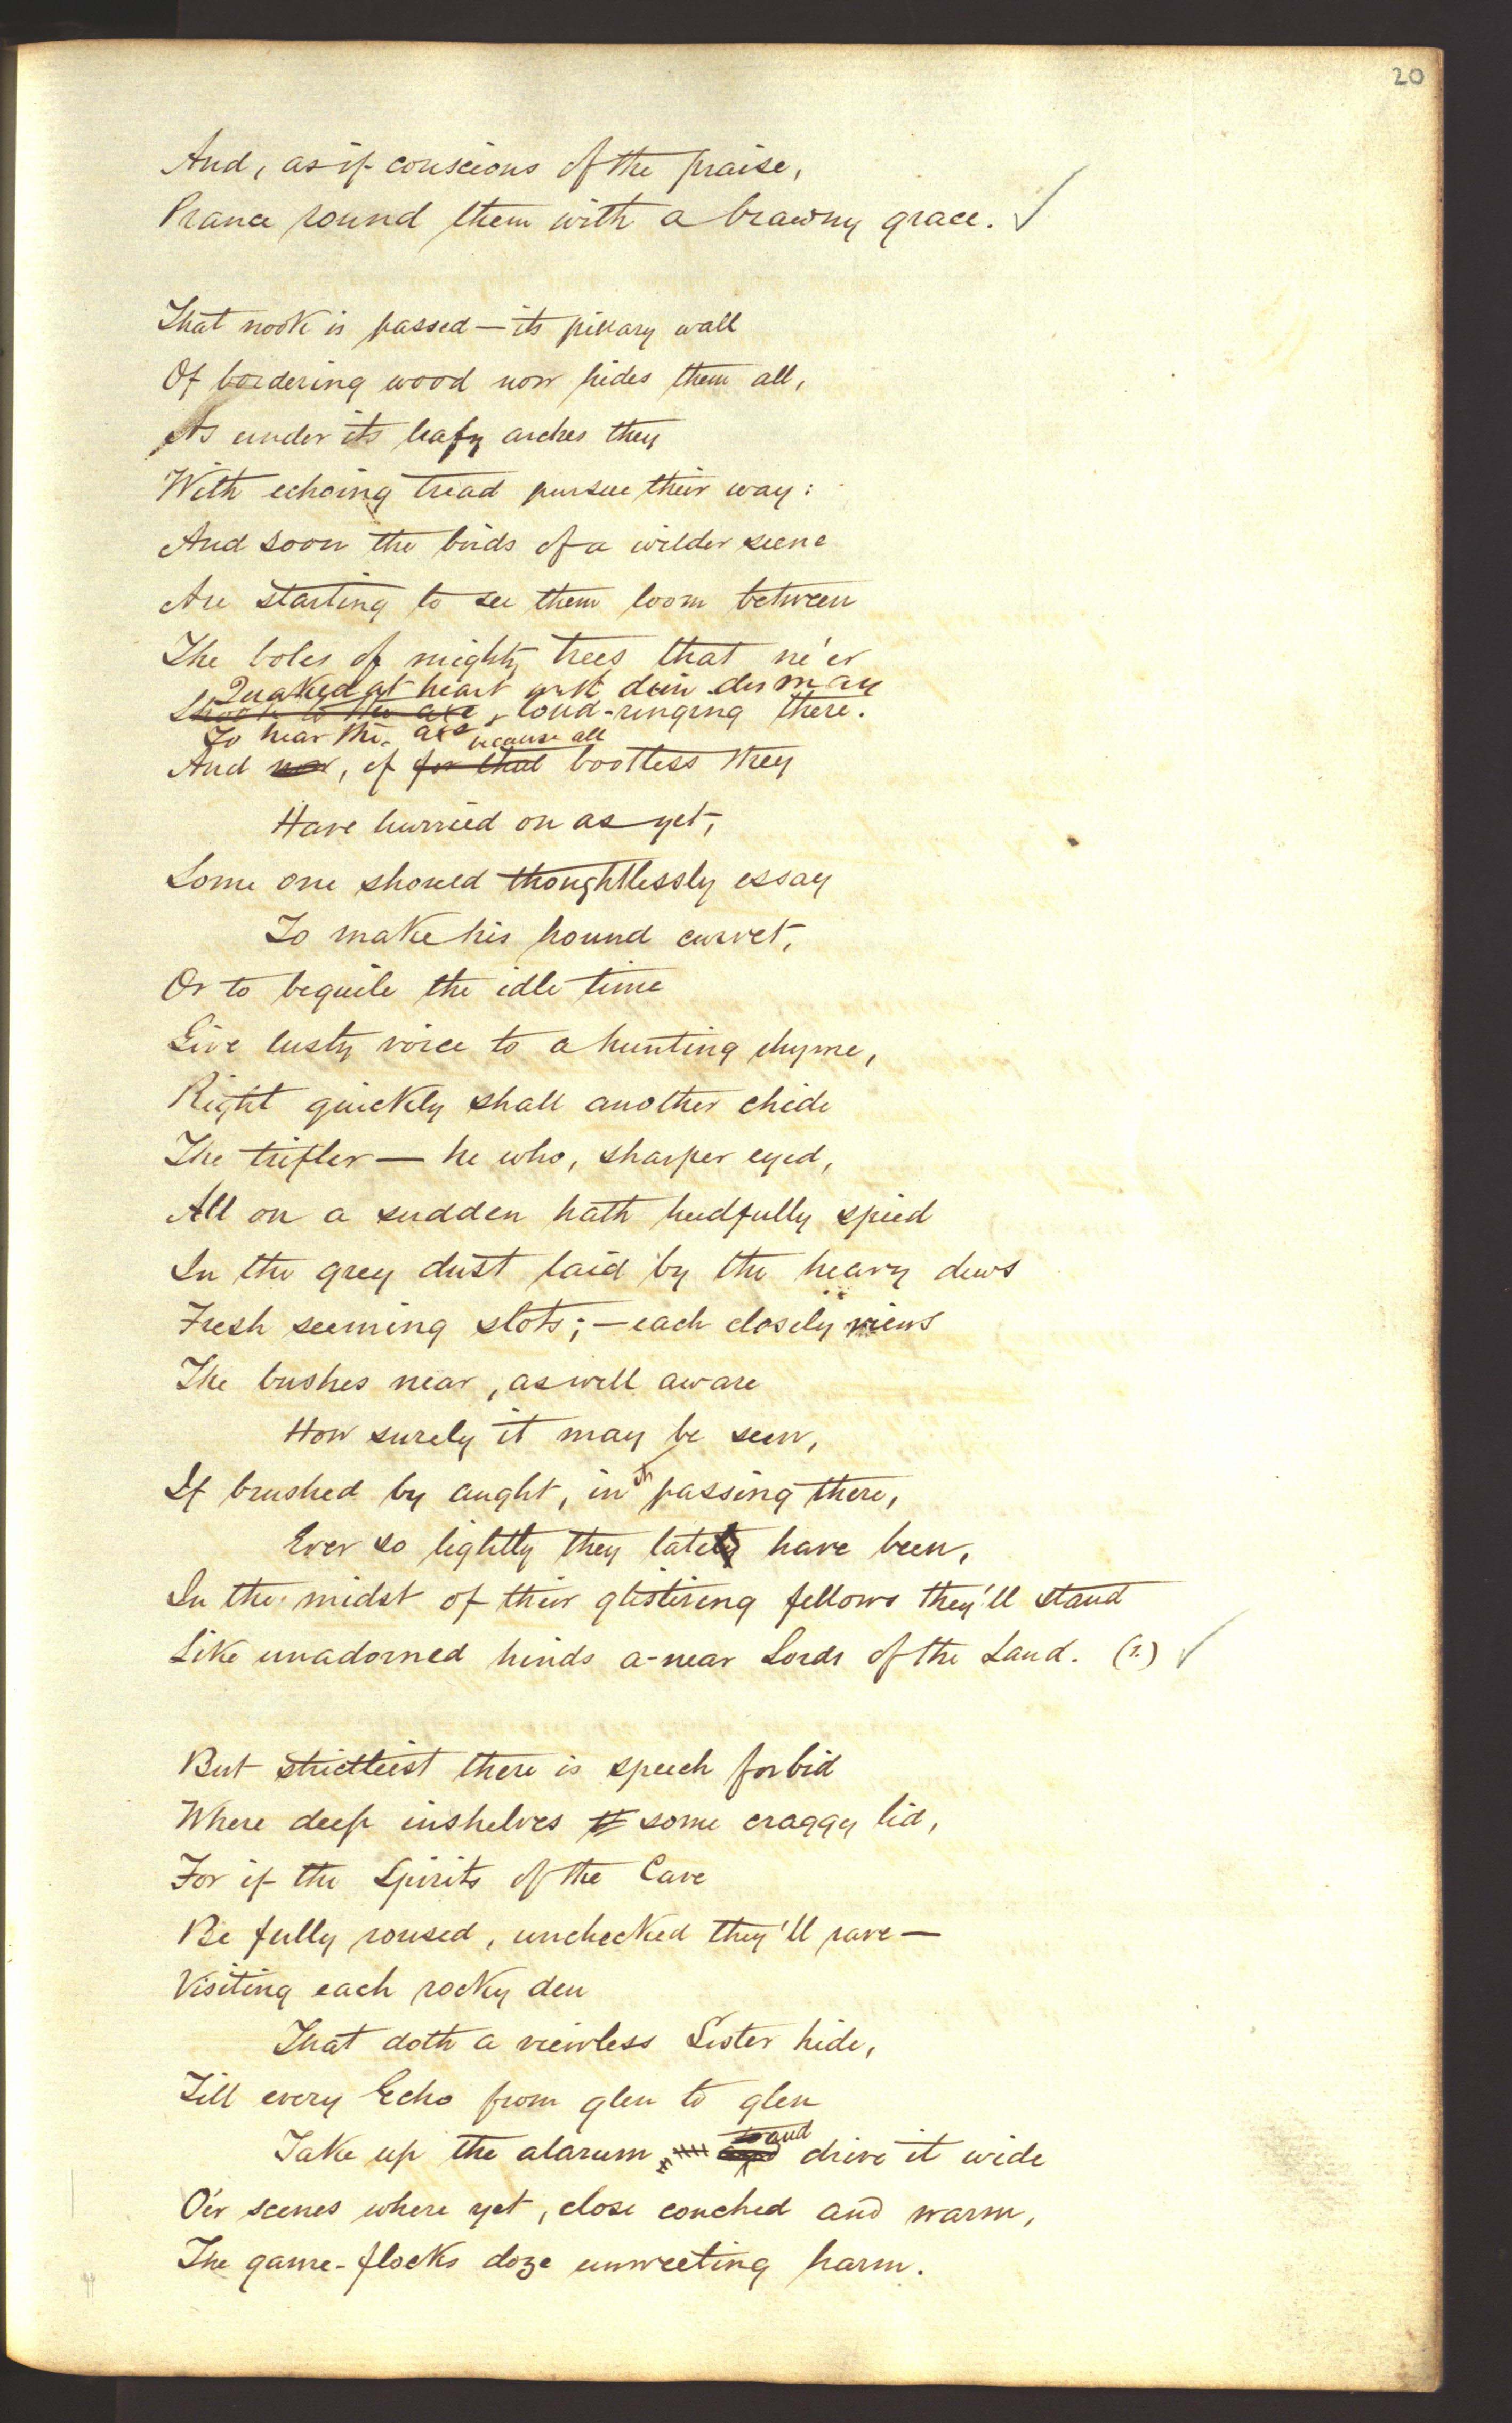 20
And, as if conscious of the praise,
Prance round them with a brawny grace. ✓
That nook is passed — its pillary wall
Of bordering wood now hides them all,
As under its leafy arches they
With echoing tread pursue their way:
And soon the birds of a wilder scene
Are starting to see them loom between
The boles of mighty trees that ne'er
Quaked at heart with drear dismay
Shook to the axe, loud-ringing there.
To hear the axe because all
And now, if for that bootless they
Have hurried on as yet,
Some one should thoughtlessly essay
To make his hound curvet,
Or to beguile the idle time
Give lusty voice to a hunting rhyme,
Right quickly shall another chide
The trifler — he who, sharper eyed,
All on a sudden hath heedfully spied
In the grey dust laid by the heavy dews
Fresh seeming slots; — each closely views
The bushes near, as well aware
How surely it may be seen,
If brushed by aught, in its passing there,
Ever so lightly they lately have been,
In the midst of their glistering fellows they'll stand
Like unadorned hinds a-near Lords of the Land. (2.) ✓
But strictliest there is speech forbid
Where deep inshelves some craggy lid,
For if the Spirits of the Cave
Be fully roused, unchecked they'll rave —
Visiting each rocky den
That doth a viewless Sister hide,
Till every Echo from glen to glen
and
Take up the alarum drive it wide
O'er scenes where yet, close couched and warm,
The game-flocks doze unweeting harm.